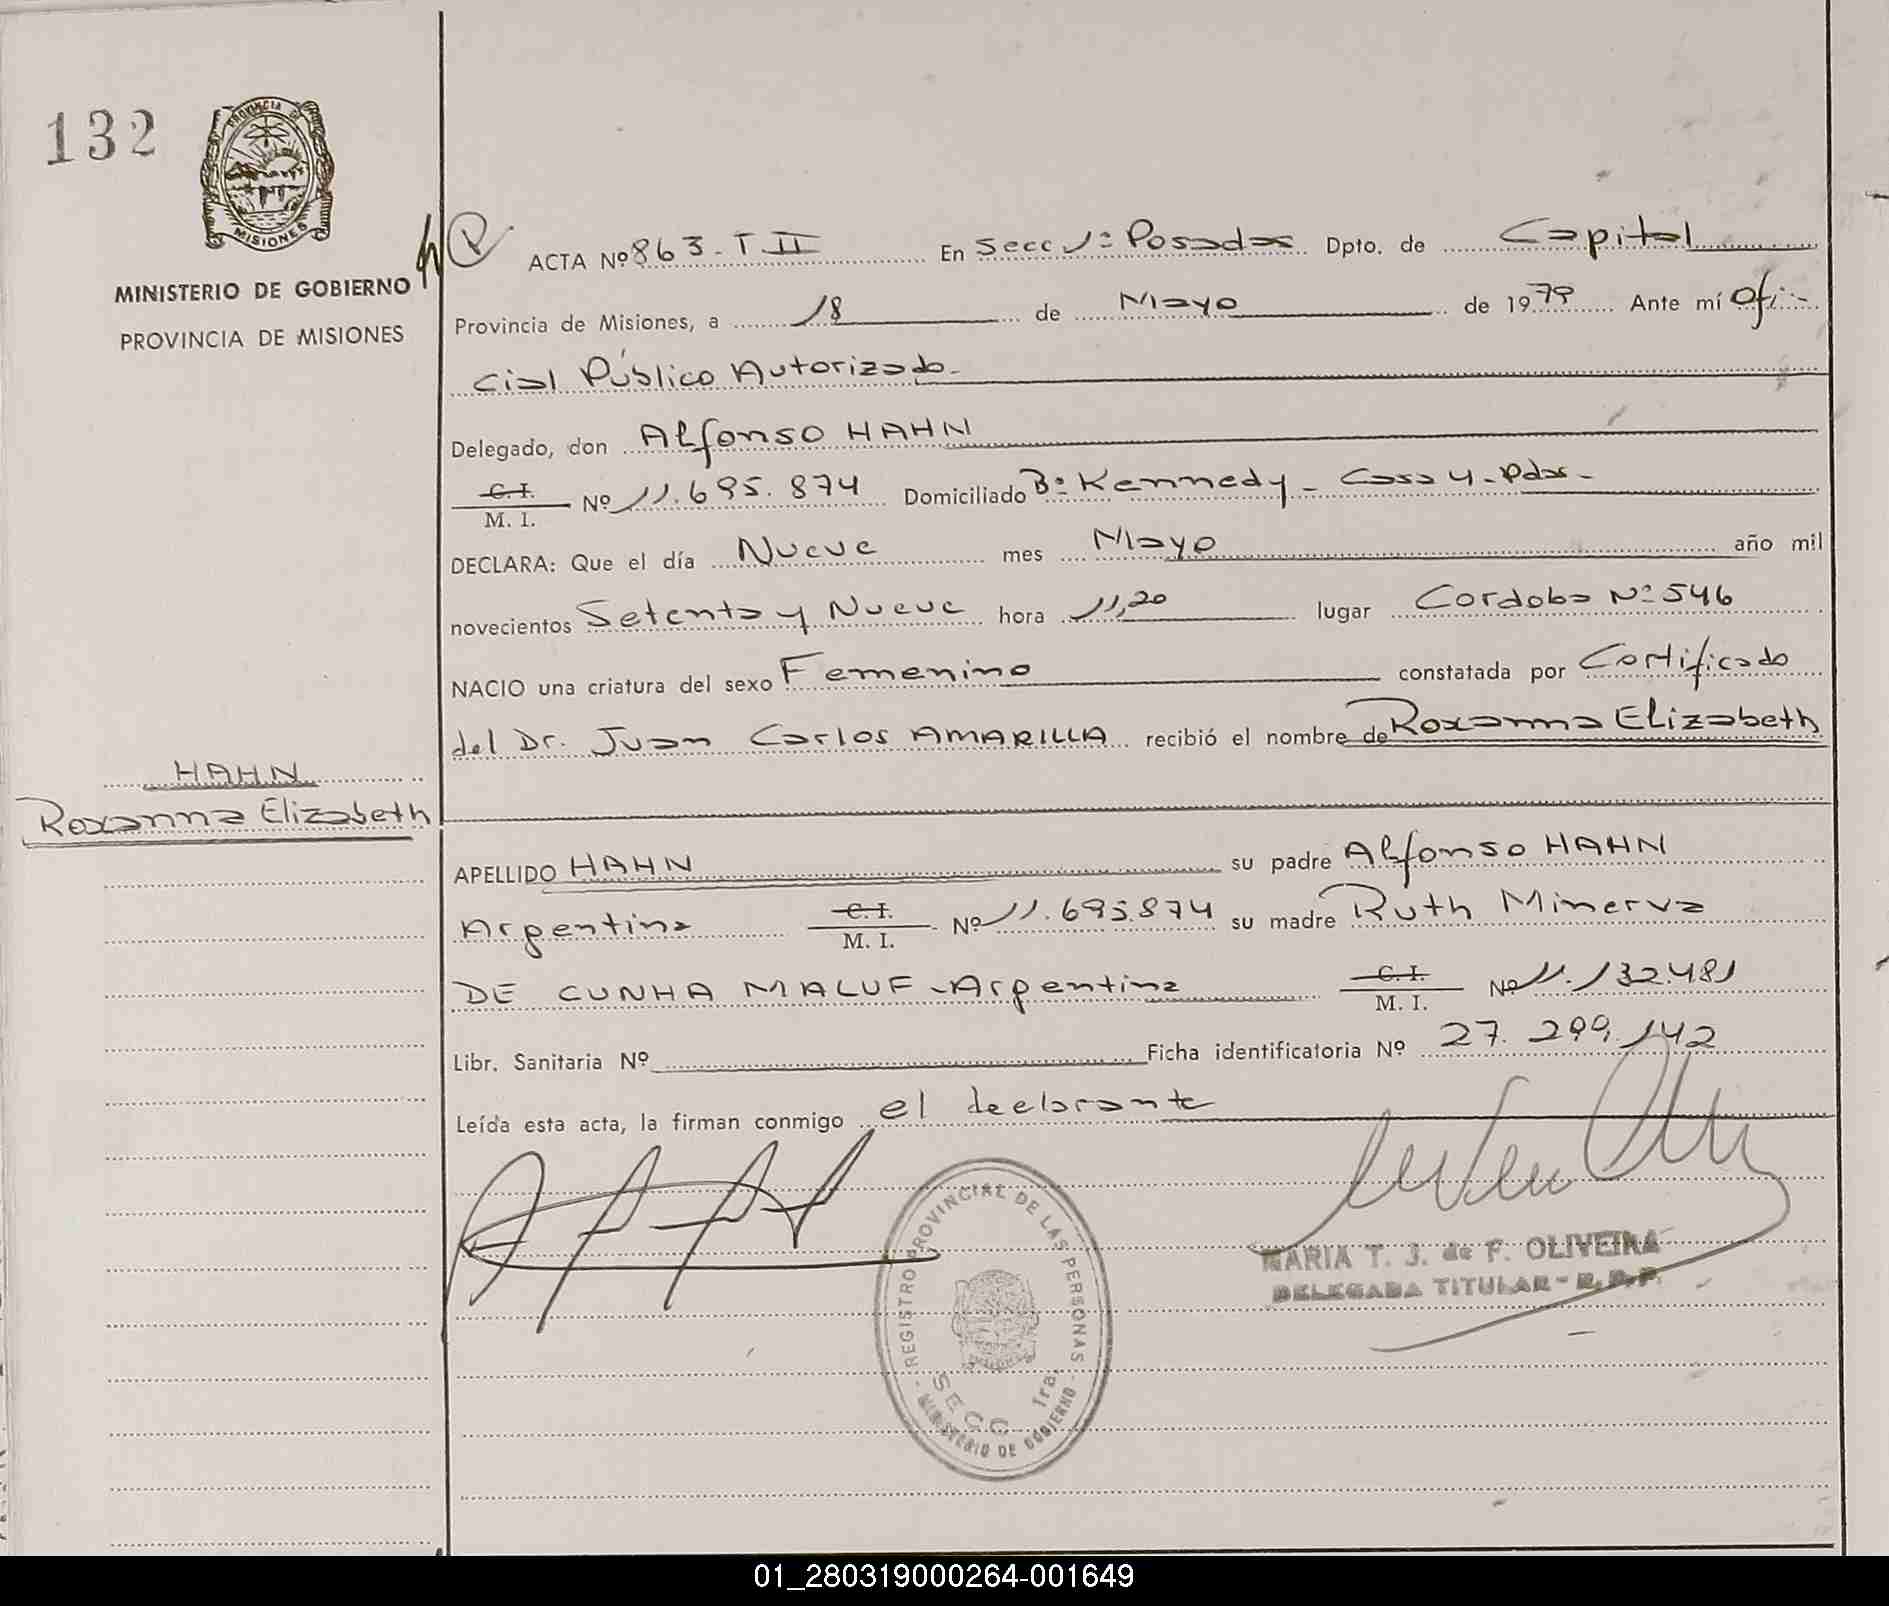 132
PROVINCIA DE
MISIONES
MINISTERIO DE GOBIERNO
PROVINCIA DE MISIONES
ACTA Nº 863-T II En Secc 1ª Posadas Dpto. de Capital
Provincia de Misiones, a 18 de Mayo de 1979 Ante mí Ofi-
cial Público Autorizado-
Delegado, don Alfonso HAHN
C.I.
M. I. Nº 11.695.874 Domiciliado Bº Kennedy - Casa 4 - Pdas-
DECLARA: Que el día Nueve mes Mayo año mil
novecientos Setenta y Nueve hora 11,20 lugar Cordoba Nº 546
NACIO una criatura del sexo Femenino constatada por Certificado
del Dr. Juan Carlos AMARILLA recibió el nombre de Roxanna Elizabeth
HAHN
Roxanna Elizabeth
APELLIDO HAHN su padre Alfonso HAHN
Argentina C.I.
M. I. Nº 11.695.874 su madre Ruth Minerva
DE CUNHA MALUF - Argentina C.I.
M. I. Nº 11.132.481
Libr. Sanitaria Nº Ficha identificatoria Nº 27.299.142
Leída esta acta, la firman conmigo el declarante
REGISTRO PROVINCIAL DE LAS PERSONAS
SECC 1ra
MINISTERIO DE GOBIERNO
MARIA T. J. de F. OLIVEIRA
DELEGADA TITULAR - R. P. P.
01_280319000264-001649